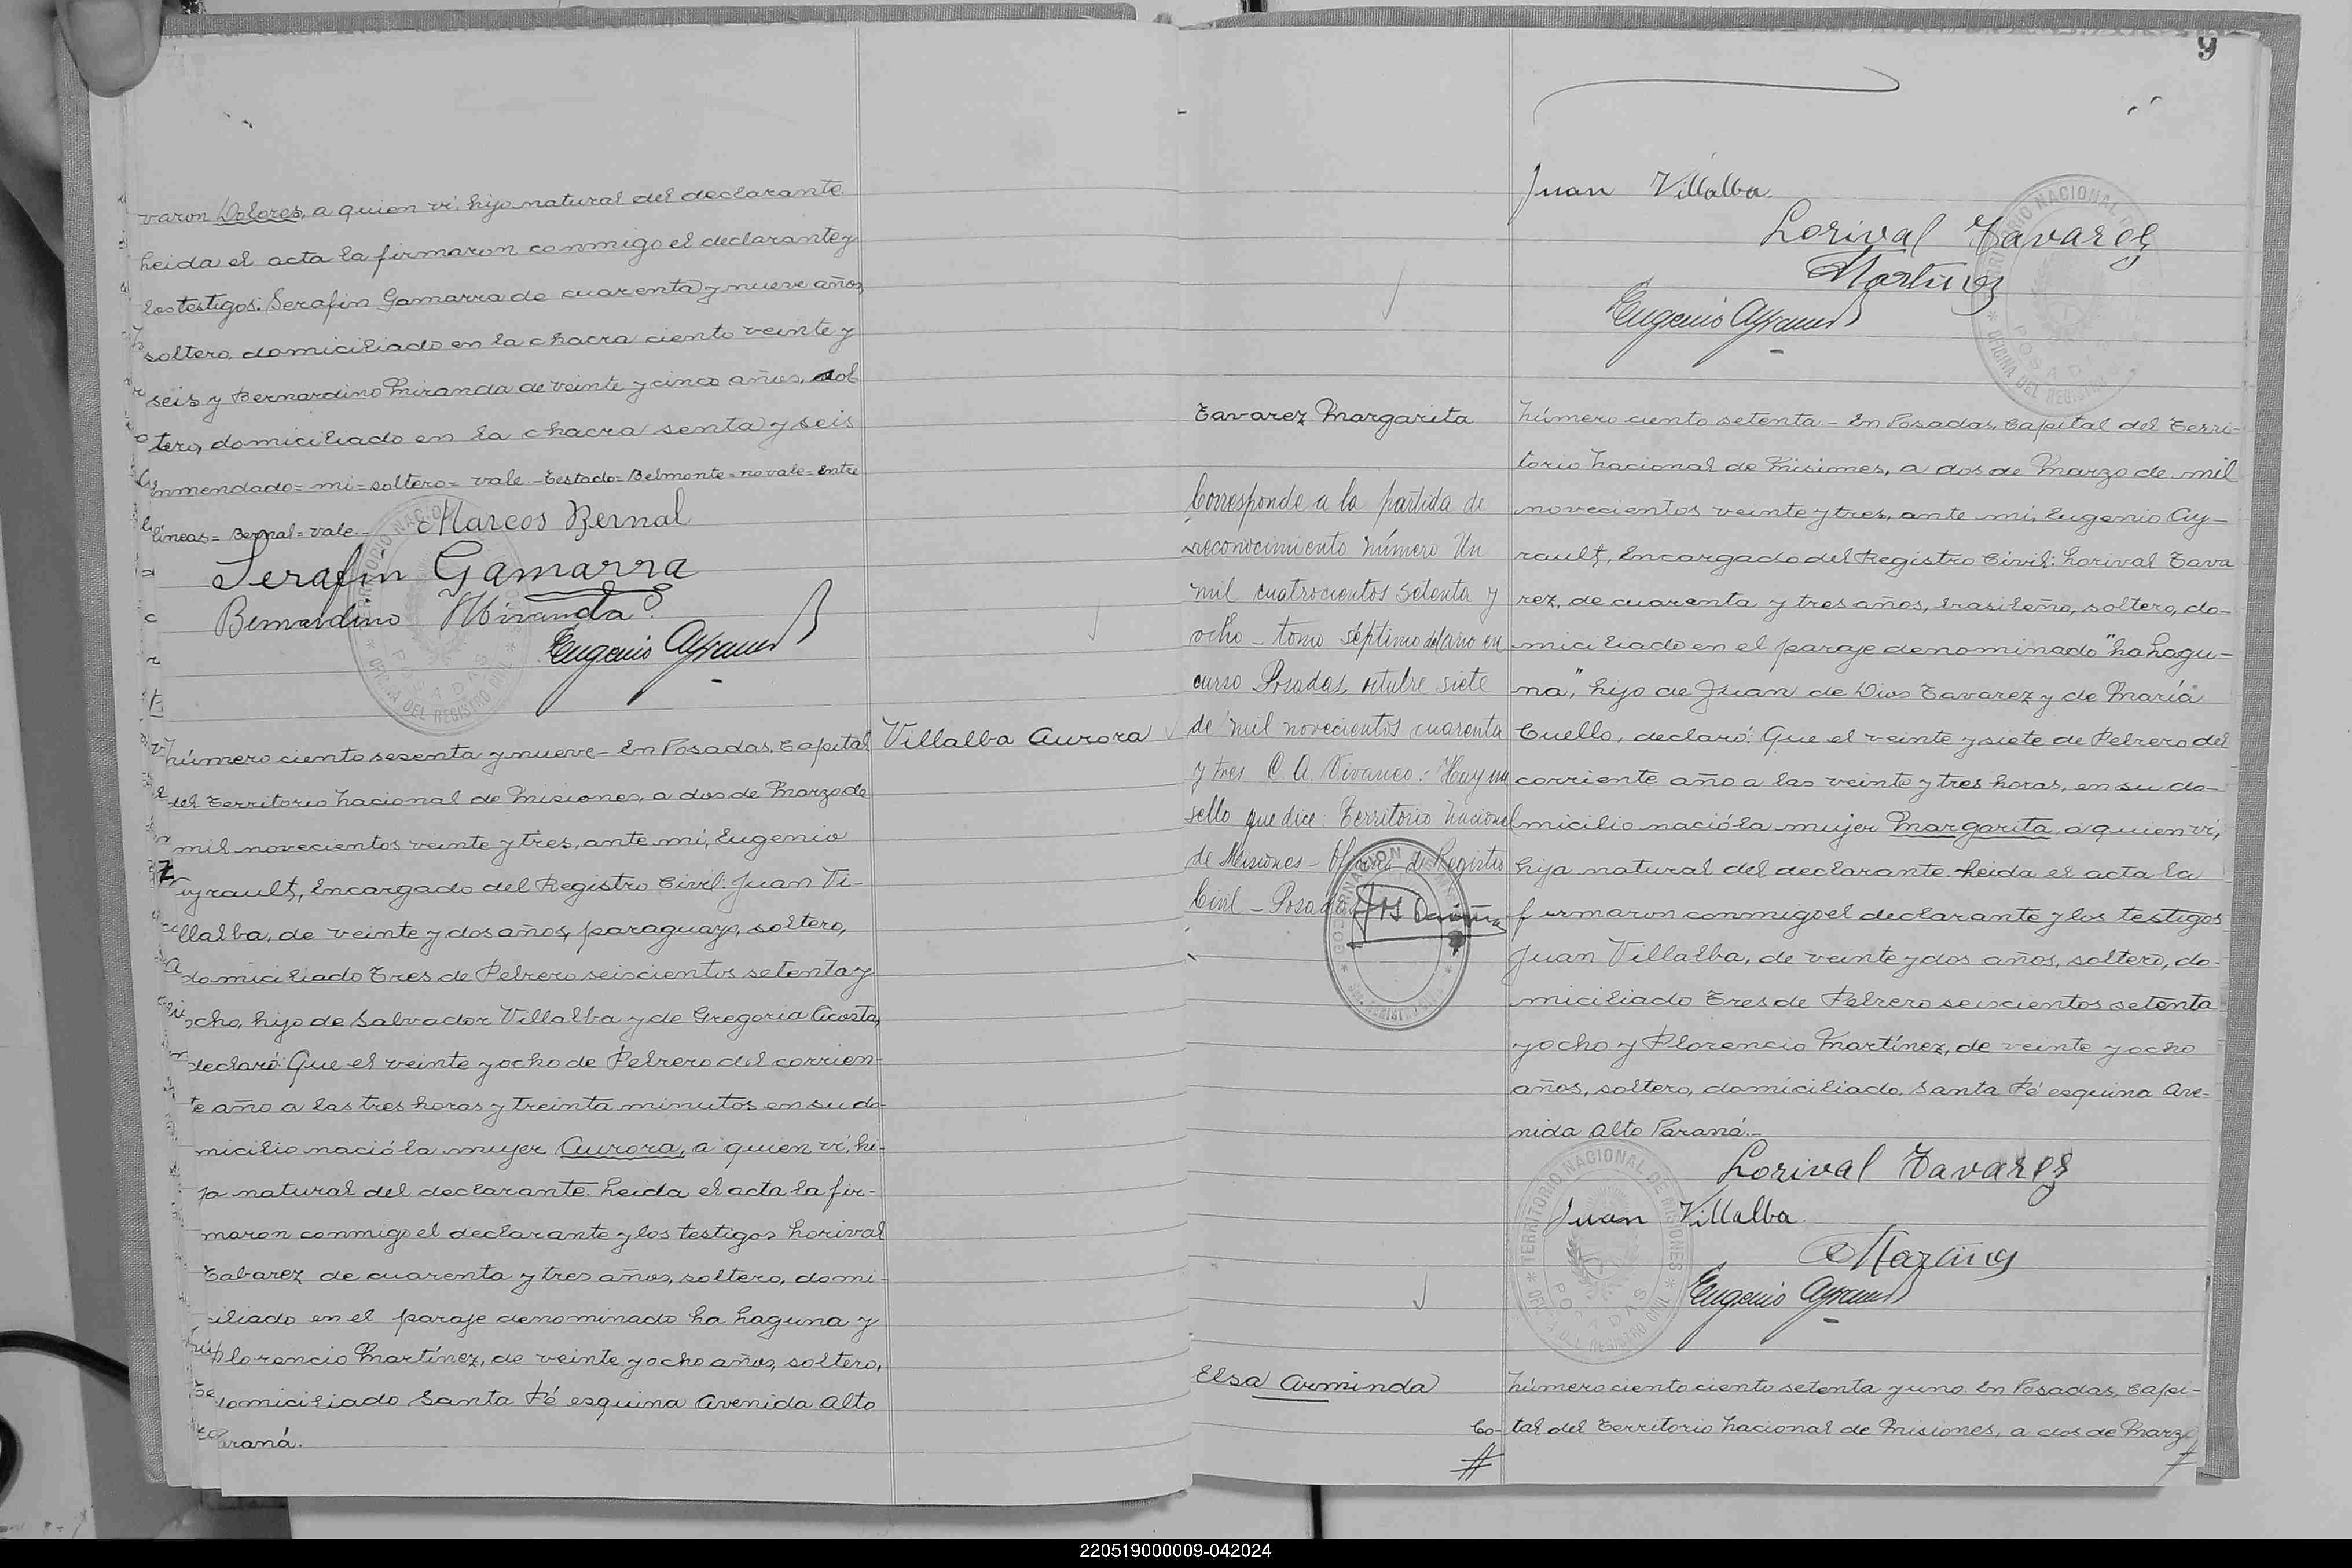 varon Dolores, a quien ví, hijo natural del declarante
Leida el acta la firmaron conmigo el declarante y
los testigos: Serafin Gamarra de cuarenta y nueve años,
soltero, domiciliado en la chacra ciento veinte y
seis y Bernardino Miranda de veinte y cinco años, sol
tero, domiciliado en la chacra senta y seis
Enmendado= mi=soltero= vale.-Testado=Belmonte=no vale=Entre
lineas= Bernal=vale.-
Marcos Bernal
Serafin Gamarra
Bernardino Miranda
Eugenio Ayrault
TERRITORIO NACIONAL DE MISIONES
POSADAS
OFICINA DEL REGISTRO CIVIL
Villalba Aurora
Número ciento sesenta y nueve- En Posadas, Capital
del Territorio Nacional de Misiones, a dos de Marzo de
mil novecientos veinte y tres, ante mí, Eugenio
Ayrault, Encargado del Registro Civil: Juan Vi-
llalba, de veinte y dos años, paraguayo, soltero,
domiciliado Tres de Febrero seiscientos setenta y
ocho, hijo de Salvador Villalba y de Gregoria Acosta,
declaró: Que el veinte y ocho de Febrero del corrien-
te año a las tres horas y treinta minutos en su do-
micilio nació la mujer Aurora, a quien ví, hi-
ja natural del declarante. Leida el acta la fir-
maron conmigo el declarante y los testigos Lorival
Tabarez de cuarenta y tres años, soltero, domi-
ciliado en el paraje denominado La Laguna y
Florencio Martínez, de veinte y ocho años, soltero,
domiciliado Santa Fé esquina Avenida Alto
Paraná.
9
Juan Villalba
Lorival Tavares
Martinez
Eugenio Ayrault
TERRITORIO NACIONAL DE
POSADAS
OFICINA DEL REGISTRO
Tavarez Margarita
Corresponde a la partida de
reconocimiento número Un
mil cuatrocientos setenta y
ocho - tomo séptimo del año en
curso Posadas, octubre siete
de mil novecientos cuarenta
y tres C. A. Vivanco: Hay un
sello que dice: Territorio Nacional
de Misiones - Oficina de Registro
Civil - Posadas
Número ciento setenta - En Posadas, Capital del Terri-
torio Nacional de Misiones, a dos de Marzo de mil
novecientos veinte y tres, ante mí, Eugenio Ay-
rault, Encargado del Registro Civil: Lorival Tava
rez, de cuarenta y tres años, brasileño, soltero, do-
miciliado en el paraje denominado "La Lagu-
na," hijo de Juan de Dios Tavarez y de María
Cuello, declaró: Que el veinte y siete de Febrero del
corriente año a las veinte y tres horas, en su do-
micilio nació la mujer Margarita, a quien ví,
hija natural del declarante. Leida el acta la
firmaron conmigo el declarante y los testigos
Juan Villalba, de veinte y dos años, soltero, do-
miciliado Tres de Febrero seiscientos setenta
y ocho y Florencio Martínez, de veinte y ocho
años, soltero, domiciliado, Santa Fé esquina Ave-
nida Alto Paraná.-
Lorival Tavares
Juan Villalba
Martinez
Eugenio Ayrault
TERRITORIO NACIONAL DE MISIONES
POSADAS
OFICINA DEL REGISTRO CIVIL
Elsa Arminda
Número ciento ciento setenta y uno En Posadas, Capi-
Co- tal del Territorio Nacional de Misiones, a dos de Marzo
220519000009-042024